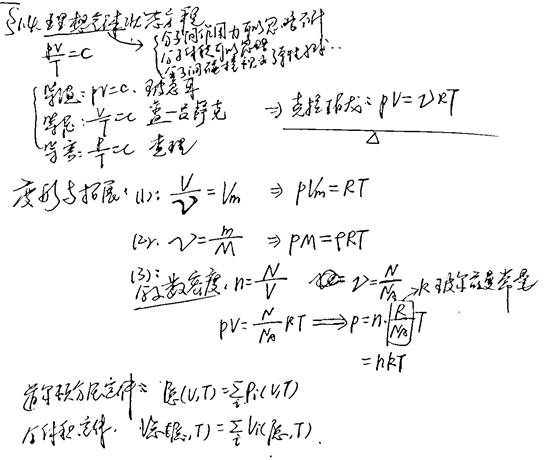 §1.1. 理想气体状态方程
pV/T = C
分子间作用力可以忽略不计
分子体积可以忽略
分子间碰撞视为弹性碰撞...
等温: pV=C. 玻意耳
等压: V/T=C 盖-吕萨克
等容: P/T=C 查理
⇒ 克拉珀龙: pV=νRT
变形与拓展: (1): V/ν = Vm ⇒ pVm=RT
(2): ν=m/M ⇒ pM=ρRT
(3): 分子数密度, n=N/V ν=N/NA → k 玻尔兹曼常量
pV=N/NA RT ⟹ p=n·R/NA T
=nkT
道尔顿分压定律: P总(V,T)=∑i Pi(V,T)
分体积定律. V总(P总,T)=∑i Vi(P总,T).